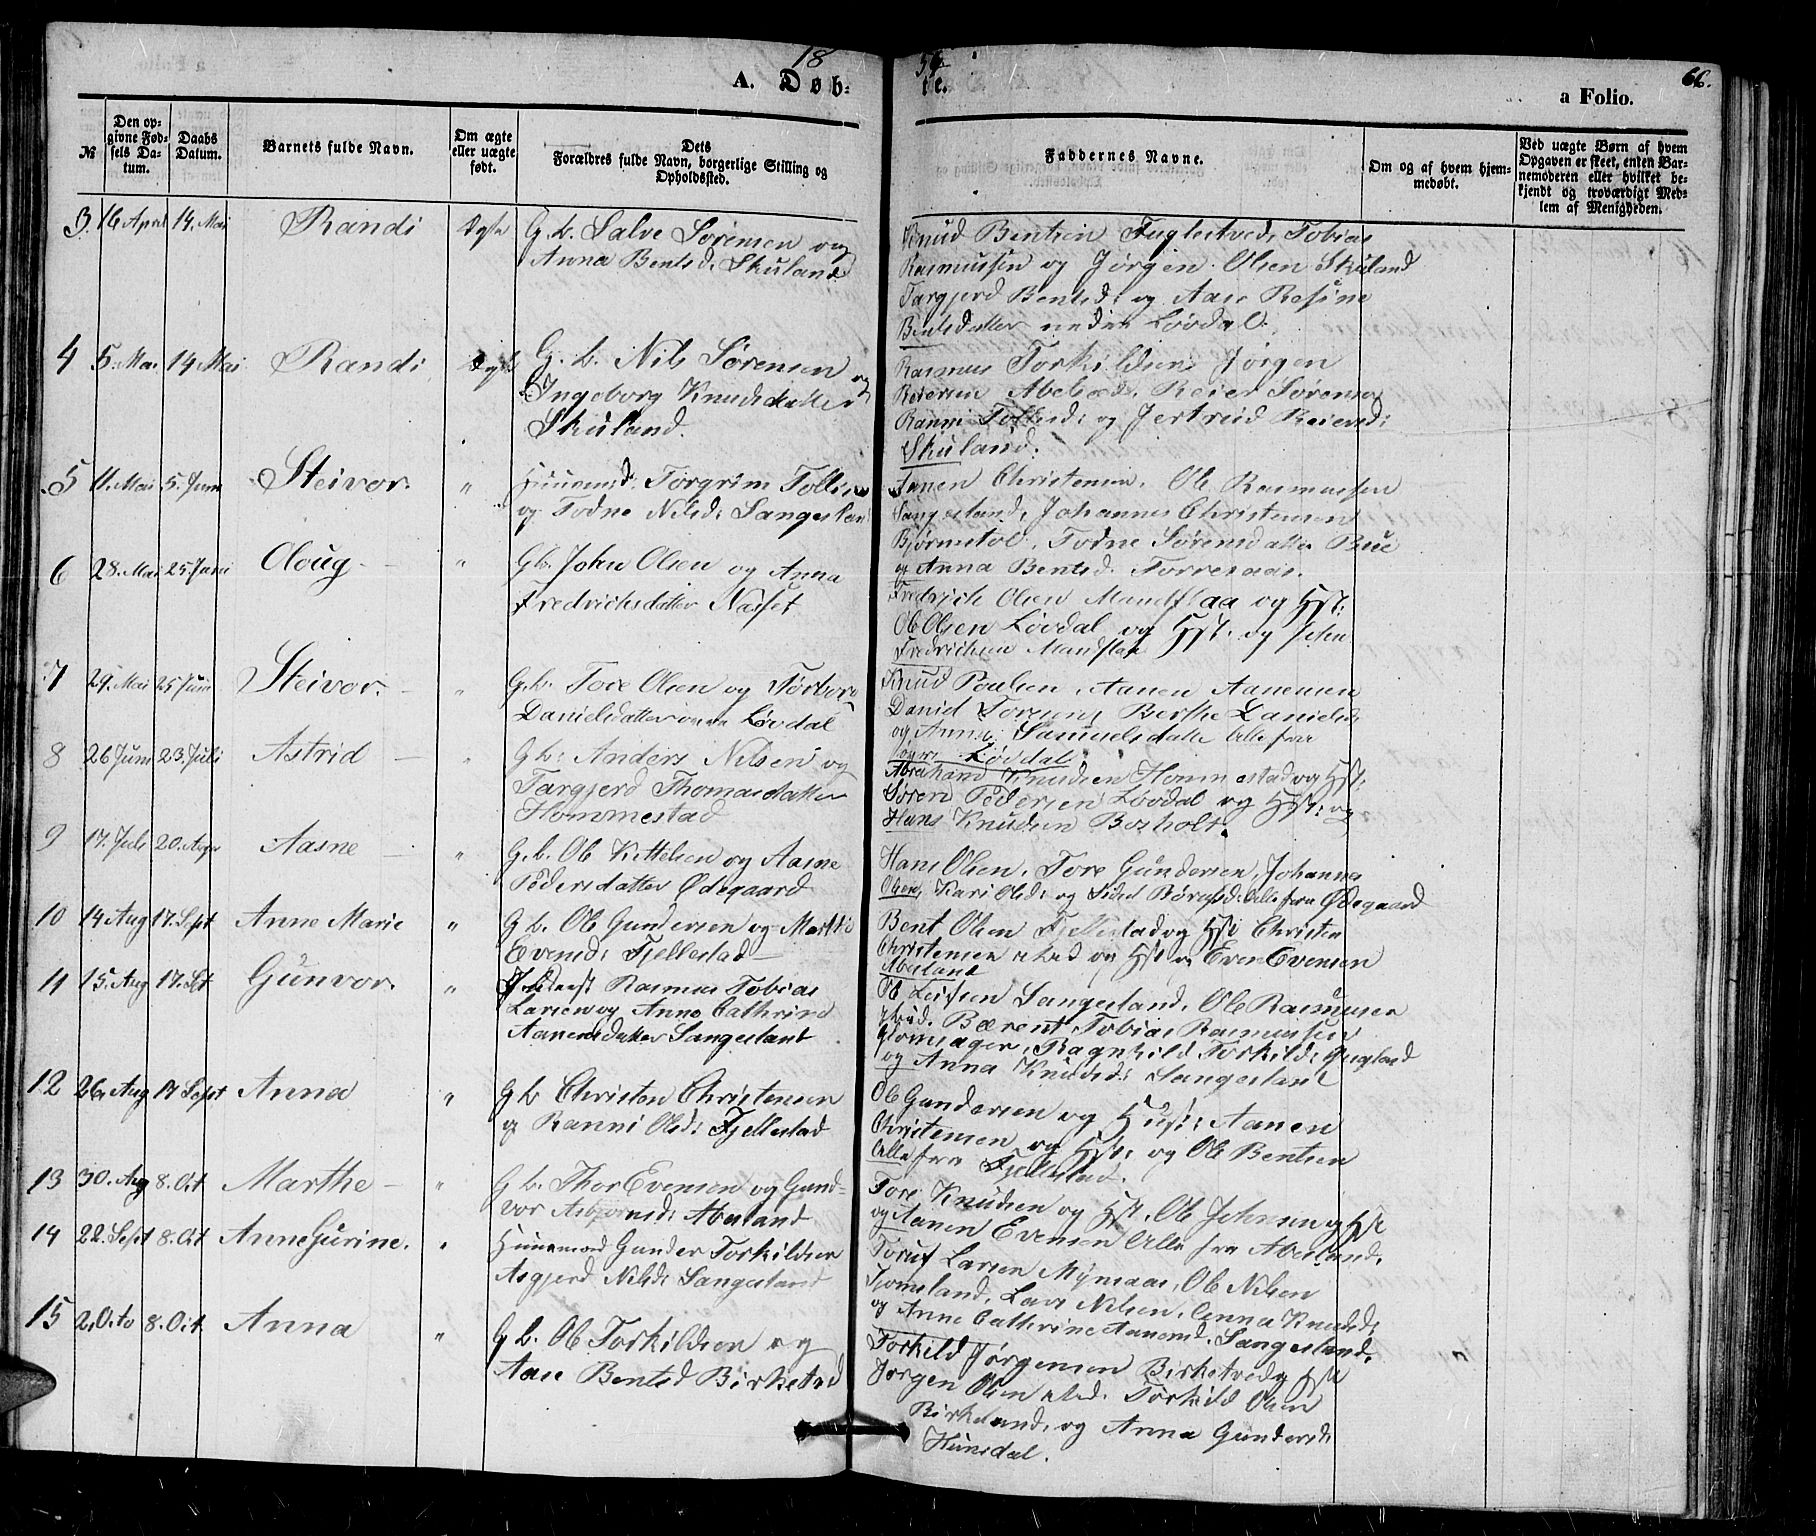 18 54
66.
A. Døb- te.
a Folio.
№
Den op-
givne Fød-
sels Da-
tum.
Daabs
Datum.
Barnets fulde Navn.
Om ægte
eller uægte
født.
Dets
Forældres fulde Navn, borgerlige Stilling og
Opholdssted.
Faddernes Navne.
Om og af hvem hjem-
medøbt.
Ved uægte Børn af hvem
Opgaven er skeet, enten Bar-
nemoderen eller hvilket be-
kjendt og troværdigt Med-
lem af Menigheden.
3. 16 April 14. Mai Randi Ægte G. b. Salve Sørensen og
Anna Bentsd: Skuland
Knud Bentsen Fuglestved, Tobias
Rasmussen og Jørgen Olsen Skuland
Targjerd Bentsd: og Aase Resine
Bentsdatter nedre Løvdal.
4 5. Mai 14 Mai Randi Ægte G. b. Nils Sørensen og
Ingeborg Knudsdatter
Skuland.
Rasmus Torkildsen Jørgen
Reiersen Abelsæd, Reier Sørensen
Ranni Tollisd: og Jertrud Reiersd:
Skuland.
5 11. Mai 5. Juni Steivor. " Huusmd. Torgrim Tollisen
og Todne Nilsd: Langesland
Aanen Christensen, Ole Rasmussen
Langesland, Johannes Christensen
Bjørnstøl, Todne Sørensdatter Bue
og Anna Bentsd. Torresaas.
6 28. Mai 25 Juni Oloug " Gb. John Olsen og Anna
Fredrichsdatter Nasset
Fredrich Olsen Mandflaa og Hst:
Ole Olsen Løvdal og Hst. og John
Fredrichsen Manflaa
7 29. Mai 25 Juni Steivor. " G. b. Tore Olsen og Torbor
Danielsdatter øvre Løvdal
Knud Poulsen, Aanen Aanensen
Daniel Toresen, Berthe Danielsd:
og Anna Samuelsdatter Alle fra
Løvdal
8 26 Juni 23. Juli Astrid " G b: Anders Nilsen og
Targjerd Thomasdatter
Hommestad
Abraham Knudsen Hommestad og Hst:
Søren Pedersen Løvdal og Hst: og
Hans Knudsen Bosholt.
9 17. Juli 20. Aug Aasne " G. b. Ole Kittelsen og Aasne
Pedersdatter Ødegaard
Hans Olsen, Tore Gundersen, Johannes
Olsen, Kari Olsd: og Sidsel Børufsd: Alle fra Ødegaard
10 14 Aug 17. Sept Anne Marie " G b. Ole Gundersen og Marthe
Evensd: Fjellestad
Bent Olsen Fjellestad og Hst Christen
Christensen ibid og Hst og Even Evensen
Abesland
11 15. Aug 17. Sept Gunvor. " Rasmus Tobias
Larsen og Anne Cathrine
Aanensdatter Langesland
Ole Leifsen Langesland, Ole Rasmussen
ibid. Bærent Tobias Rasmussen
Glomsager, Ragnhild Torkildsd: Haugland
og Anna Knudsd: Langesland
12 26. Aug 17 Sept Anna " G b Christen Christensen
og Ranni Olsd: Fjellestad
Ole Gundersen og Hust: Aanen
Christensen og Hst: og Ole Bentsen
Alle fra Fjellestad.
13 30. Aug 8. Oct Marthe " G b. Thor Evensen og Gund-
vor Asbjørnsd: Abesland
Tore Knudsen og Hst, Ole Johnsen og Hst
og Aanen Evensen Alle fra Abesland.
14 22. Sept 8. Oct Anne Gurine. " Huusmand Gunder Torkildsen
Asgjerd Nilsd: Langesland
Toruf Larsen Myraas, Ole Nilsen
Tjomsland, Lars Nilsen, Anna Knudsd:
og Anne Cathrine Aanensd. Langesland.
15 2. Octo 8. Oct Anna " G b. Ole Torkildsen og
Aase Bentsd Birketved
Torkild Jørgensen Birketved og Hst
Jørgen Olsen ibid. Torkild Olsen
Birkeland, og Anna Gundersd:
Hunsdal.